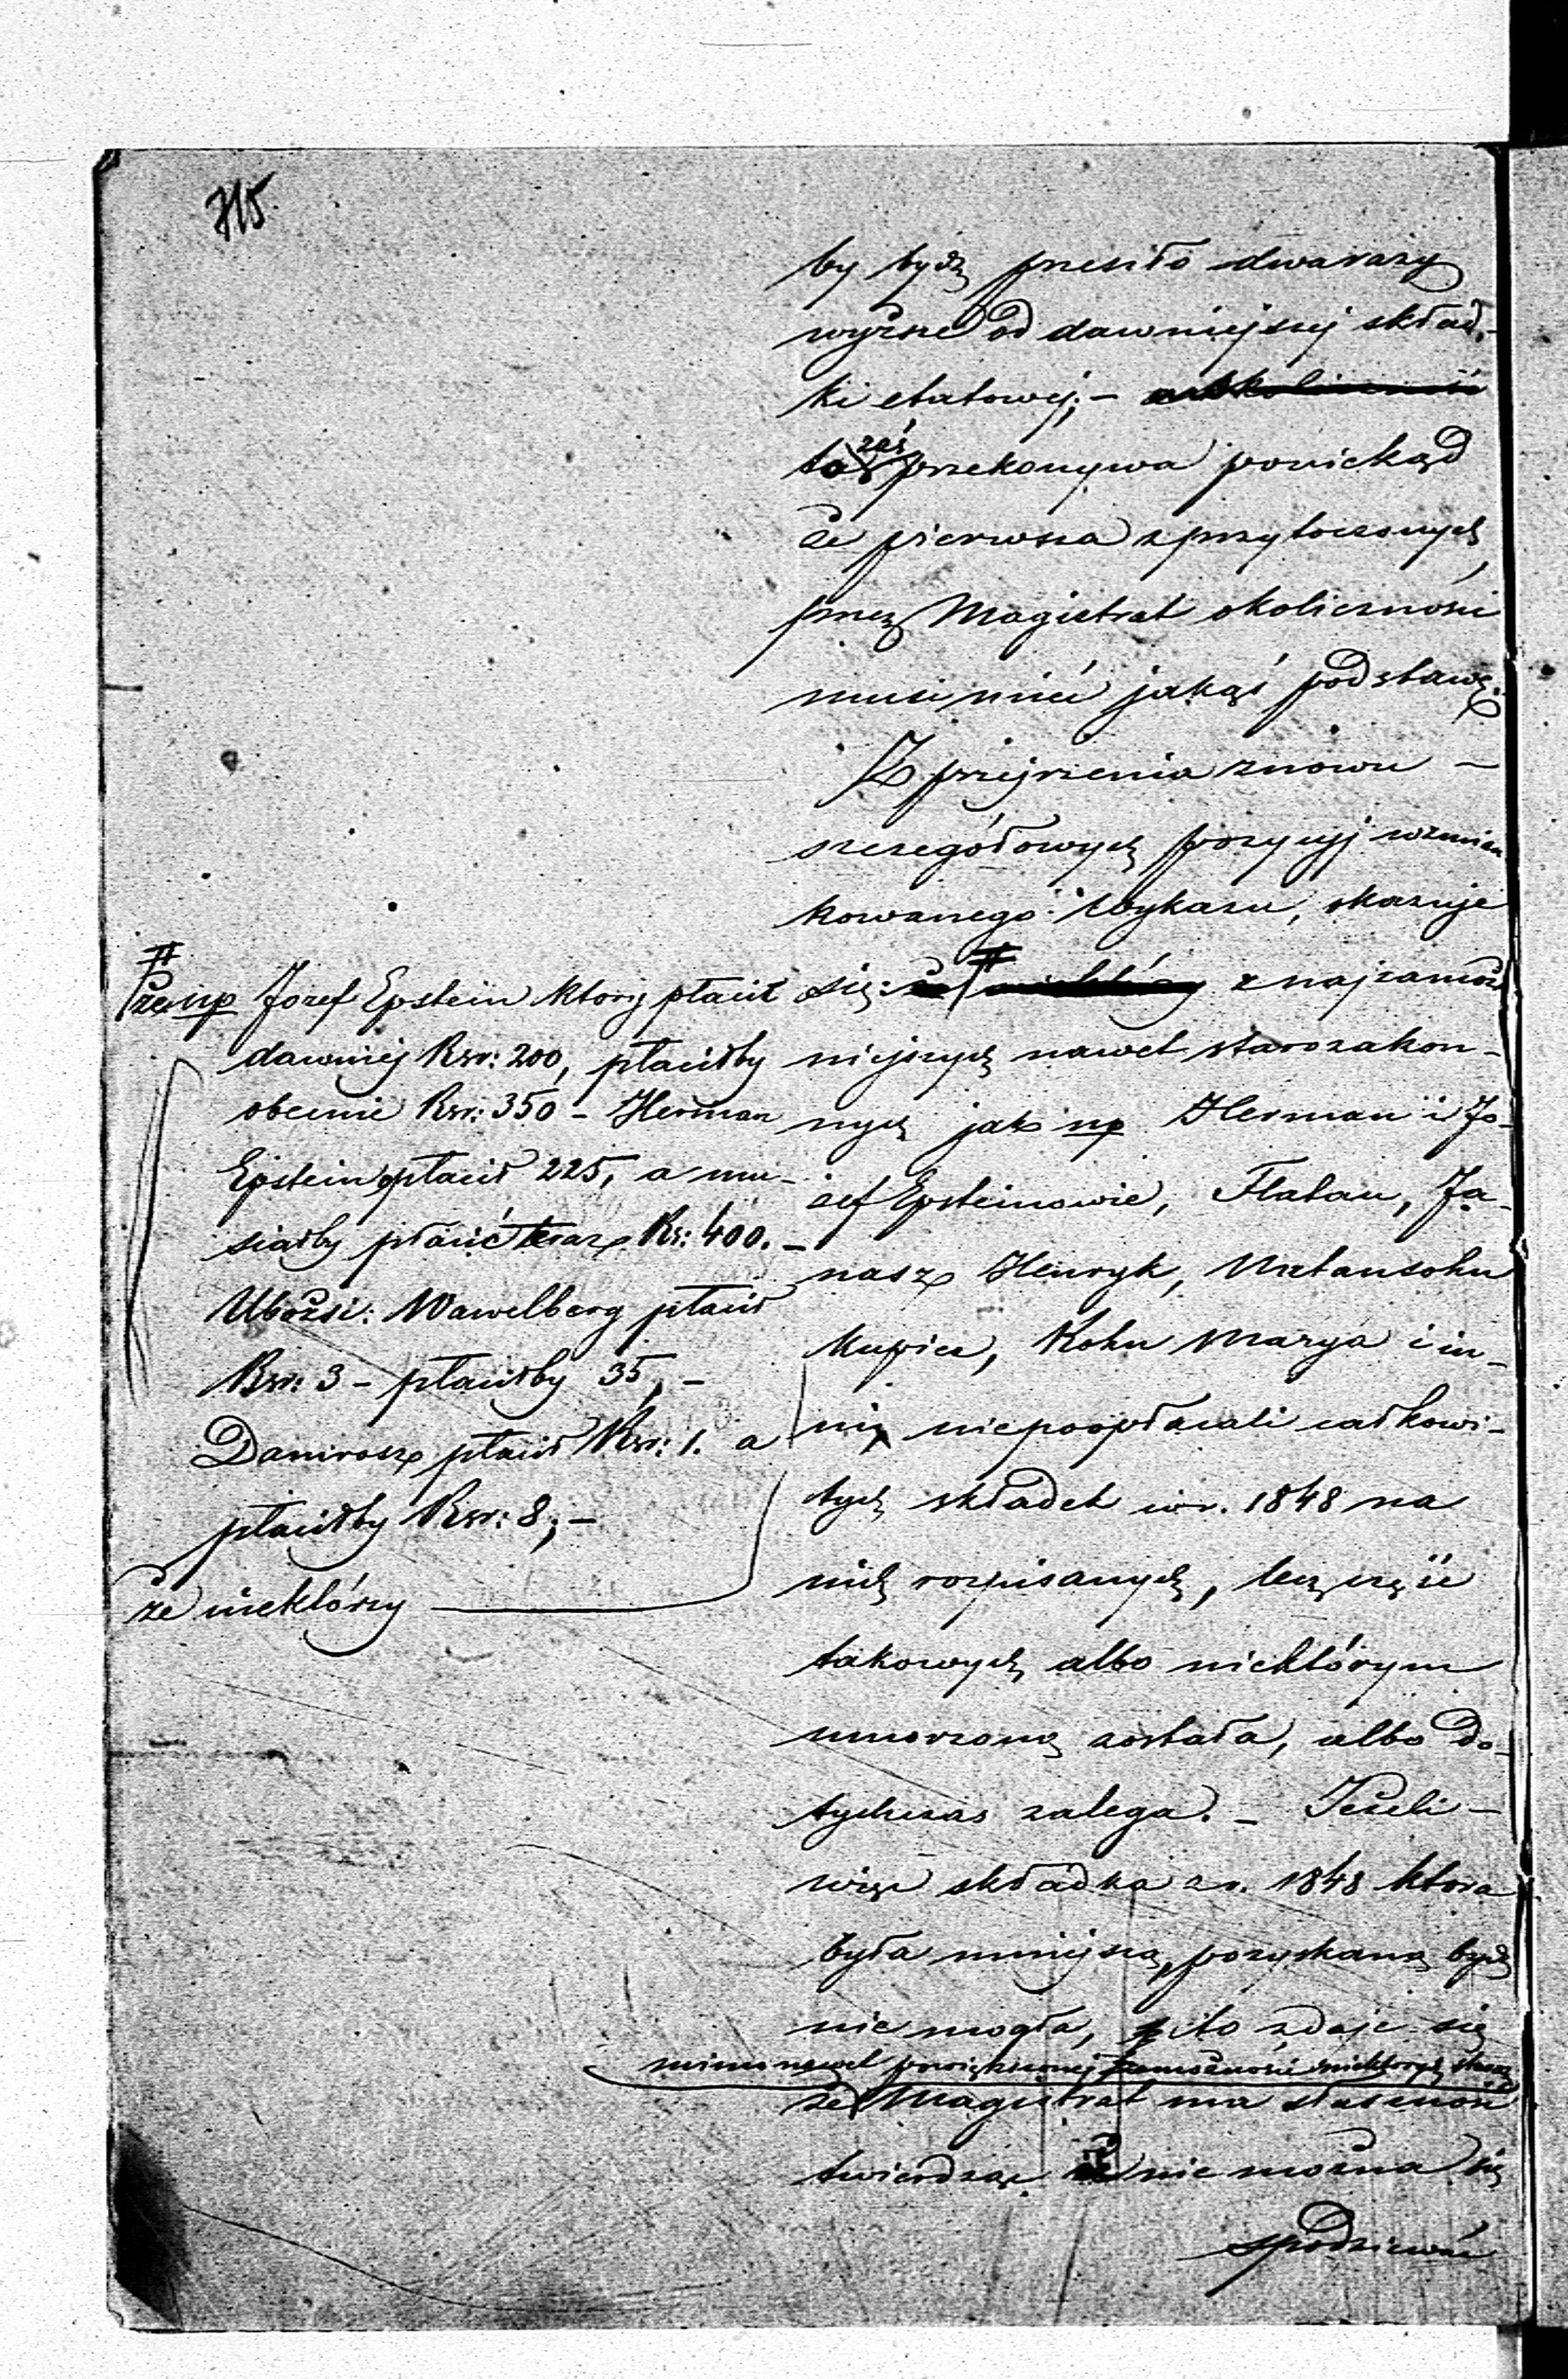 715.
by bydź przeszło dwa razy
wyższe od dawniejszej skład-
ki etatowej; –
to zaś przekonywa poniekąd
że pierwsza z przytoczonych
przez Magistrat okoliczności
musi mieć jakąś podstawę.
Z przejrzenia znowu –
szczegółowych pozycyj wzmian
kowanego Wykazu, okazuje
się: # z najzamoż
niejszych nawet starozakon-
nych jak np Herman i Jó-
zef Epsteinowie, Flatau, Ja-
nasz Henryk, Natansohn
Kupiec, Kohn Marya i in-
ni, niepoopłacali całkowi-
tych składek w r. 1848 na
nich rozpisanych, lecz część
takowych albo niektórym
umorzoną została, albo do-
tychczas zalega. – Jeżeli –
więc składka z r. 1848 która
była mniejszą, pozyskaną bydź
nie mogła, to zdaje się
mimo nawet powiększonej zamożności niektórych staroz
że Magistrat ma słuszność
twierdząc że nie można się
spodziewać
#
że np Jozef Epstein ktory płacił
dawniej Rsr: 200, płaciłby
obecnie Rsr: 350 – Herman
Epstein płacił 225, a mu-
siałby płacić teraz Rs: 400. –
Ubożsi: Wawelberg płacił
Rsr: 3 – płaciłby 35, –
Danirosz płacił Rsr: 1. a
płaciłby Rsr: 8; –
że niektórzy